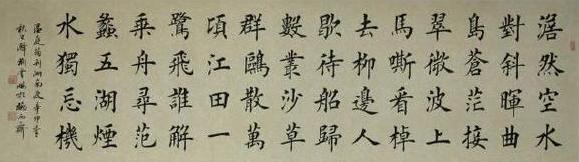 澹然空水
對斜暉曲
島蒼茫接
翠微波上
馬嘶看棹
去柳邊人
歇待船歸
數叢沙草
群鷗散萬
頃江田一
鷺飛誰解
乘舟尋范
蠡五湖煙
水獨忘機
溫庭筠利州南渡辛卯